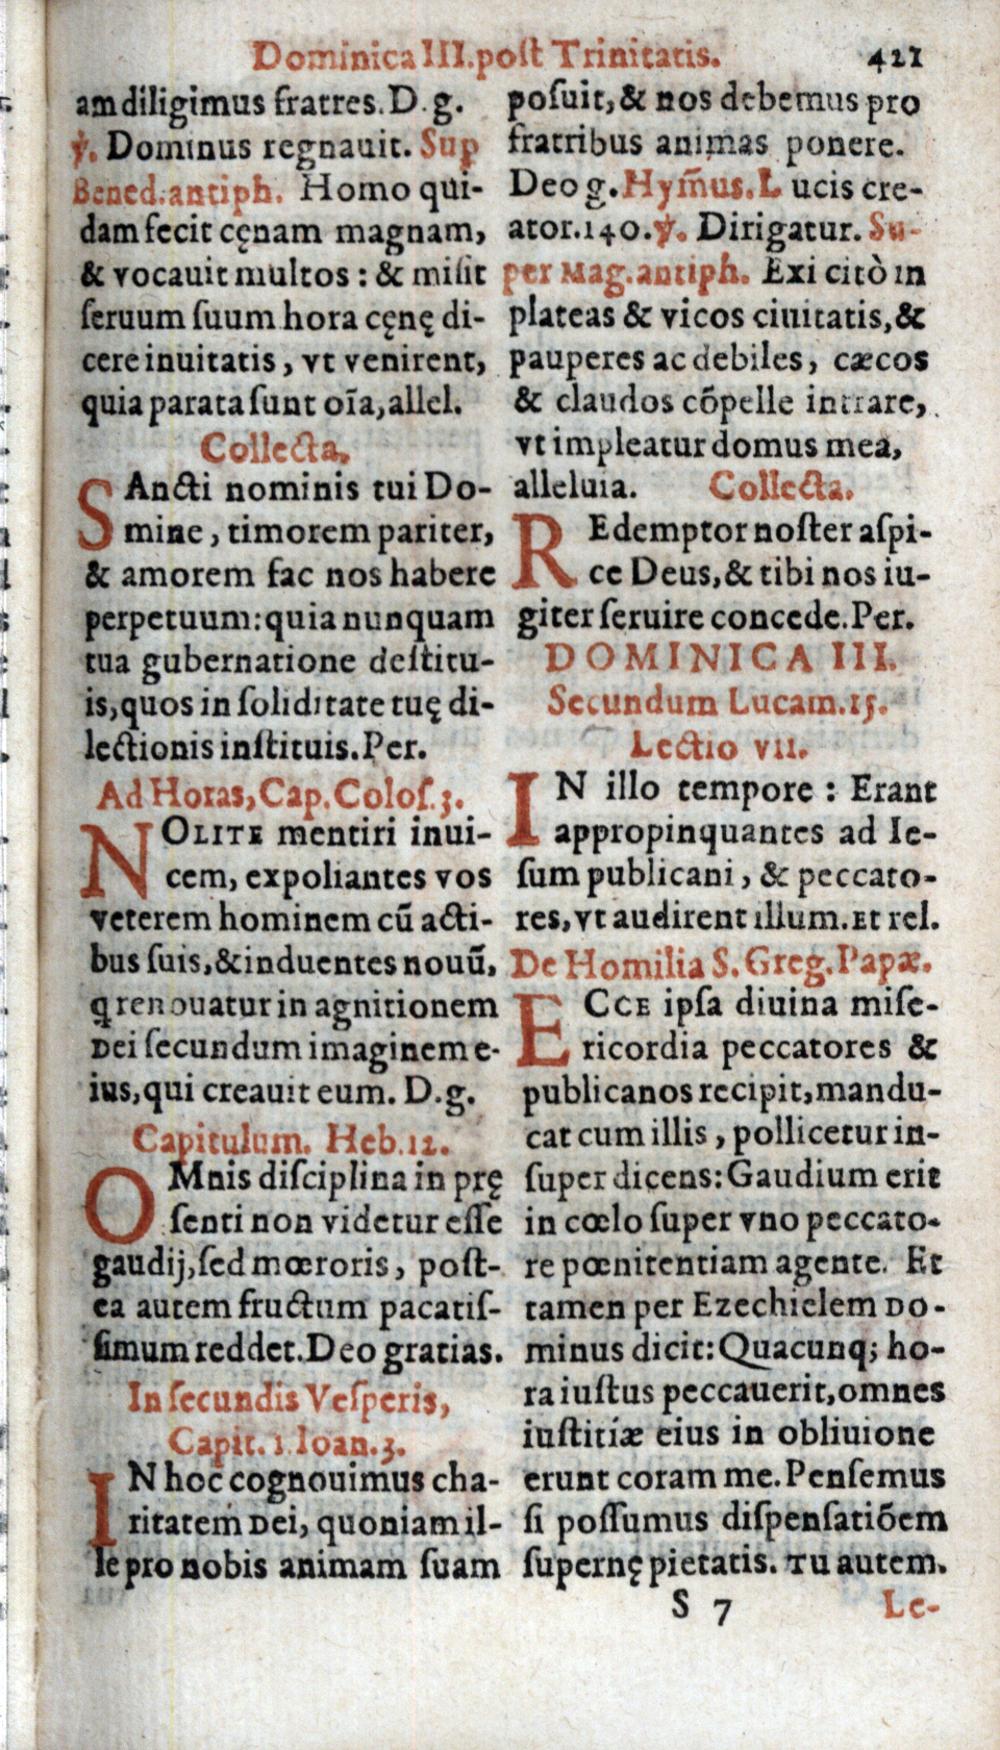 Dominica III. post Trinitatis. 421
am diligimus fratres. D. g.
℣. Dominus regnauit. Sup
Bened. antiph. Homo qui-
dam fecit cęnam magnam,
& vocauit multos : & misit
ſeruum ſuum hora cęnę di-
cere inuitatis, vt venirent,
quia parata ſunt oīa, allel.
Collecta.
SAncti nominis tui Do-
mine, timorem pariter,
& amorem fac nos habere
perpetuum: quia nunquam
tua gubernatione deſtitu-
is, quos in ſoliditate tuę di-
lectionis inſtituis. Per.
Ad Horas, Cap. Coloſ. 3.
NOLITE mentiri inui-
cem, expoliantes vos
veterem hominem cū acti-
bus ſuis, & induentes nouū,
q renouatur in agnitionem
Dei ſecundum imaginem e-
ius, qui creauit eum. D. g.
Capitulum. Heb. 12.
OMnis diſciplina in prę
ſenti non videtur eſſe
gaudij, ſed mœroris, poſt-
ea autem fructum pacatiſ-
ſimum reddet. Deo gratias.
In ſecundis Veſperis,
Capit. 1. Ioan. 3.
IN hoc cognouimus cha-
ritatem Dei, quoniam il-
le pro nobis animam ſuam
poſuit, & nos debemus pro
fratribus animas ponere.
Deo g. Hym̄us. L ucis cre-
ator. 140. ℣. Dirigatur. Su-
per Mag. antiph. Exi citò in
plateas & vicos ciuitatis, &
pauperes ac debiles, cæcos
& claudos cōpelle intrare,
vt impleatur domus mea,
alleluia. Collecta.
REdemptor noſter aſpi-
ce Deus, & tibi nos iu-
giter ſeruire concede. Per.
DOMINICA III.
Secundum Lucam. 15.
Lectio vii.
IN illo tempore : Erant
appropinquantes ad Ie-
ſum publicani, & peccato-
res, vt audirent illum. Et rel.
De Homilia S. Greg. Papæ.
ECCE ipſa diuina miſe-
ricordia peccatores &
publicanos recipit, mandu-
cat cum illis, pollicetur in-
ſuper dicens: Gaudium erit
in cœlo ſuper vno peccato-
re pœnitentiam agente. Et
tamen per Ezechielem Do-
minus dicit: Quacunq; ho-
ra iuſtus peccauerit, omnes
iuſtitiæ eius in obliuione
erunt coram me. Penſemus
ſi poſſumus diſpenſatiōem
ſupernę pietatis. Tu autem.
S 7 Le-